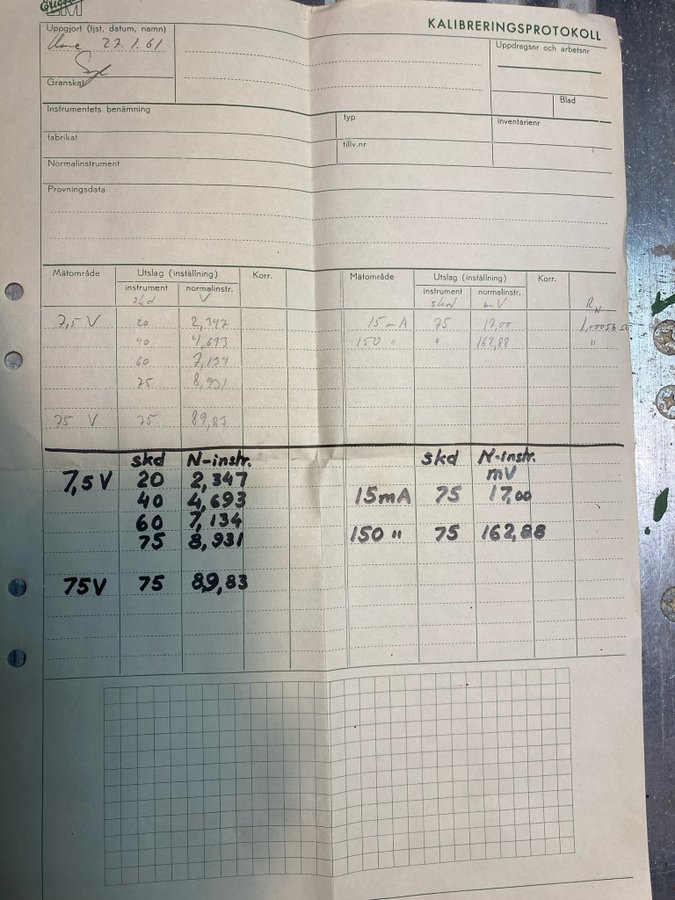 LM
KALIBRERINGSPROTOKOLL
Uppgjort (tjst, datum, namn)
27.1.61
Granskat
Uppdragsnr och arbetsnr
Blad
Instrumentets benämning
typ
inventarienr
fabrikat
tillv.nr
Normalinstrument
Provningsdata
Mätområde Utslag (inställning) Korr. Mätområde Utslag (inställning) Korr.
instrument normalinstr. instrument normalinstr.
skd V skd mV RN
7,5 V 20 2,347 15 mA 75 17,00
40 4,693 150 " " 162,88 "
60 7,134
75 8,931
75 V 75 89,83
skd N-instr. skd N-instr.
mV
7,5 V 20 2,347
40 4,693 15mA 75 17,00
60 7,134
75 8,931 150 " 75 162,88
75V 75 89,83